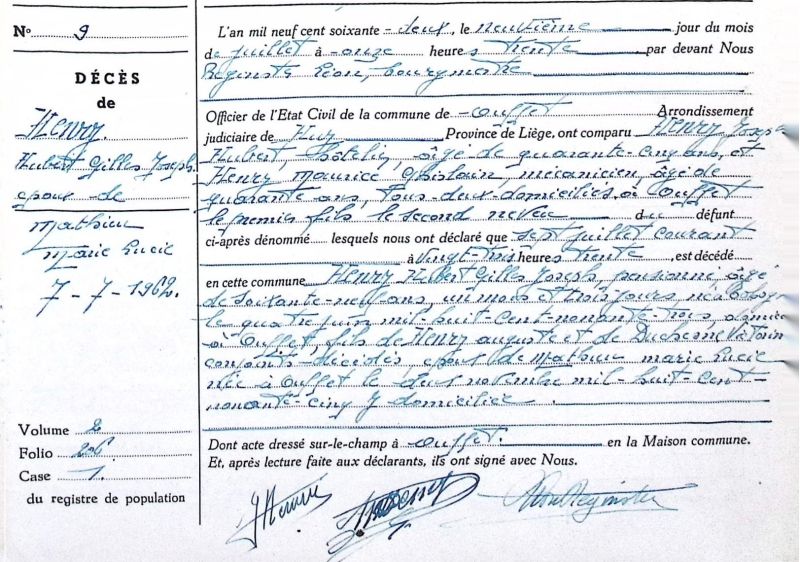 N° 9
DÉCÈS
de
Henry
Hubert Gilles Joseph
époux de
Mathieu
Marie Lucie
7-7-1962.
Volume 2
Folio 226
Case 1.
du registre de population
L'an mil neuf cent soixante-deux, le neuvième jour du mois
de juillet à onze heures trente par devant Nous
Reginster Léon, bourgmestre
Officier de l'Etat Civil de la commune de Ouffet Arrondissement
judiciaire de Huy Province de Liège, ont comparu Henry Joseph
Hubert, âgé de quarante-cinq ans, et
Henry, Maurice Ghislain, mécanicien, âgé de
quarante ans, tous deux domiciliés à Ouffet
le premier fils le second neveu du défunt
ci-après dénommé lesquels nous ont déclaré que sept juillet courant
à vingt-trois heures trente, est décédé
en cette commune Henry Hubert Gilles Joseph, pensionné, âgé
de soixante-neuf ans, un mois et trois jours, né à
le quatre juin mil-huit-cent-nonante-trois,
à Ouffet, fils de Henry Auguste et de Duchesne
conjoints décédés, époux de Mathieu Marie Lucie
née à Ouffet le deux novembre mil-huit cent-
nonante-cinq y domiciliée.
Dont acte dressé sur-le-champ à Ouffet. en la Maison commune.
Et, après lecture faite aux déclarants, ils ont signé avec Nous.